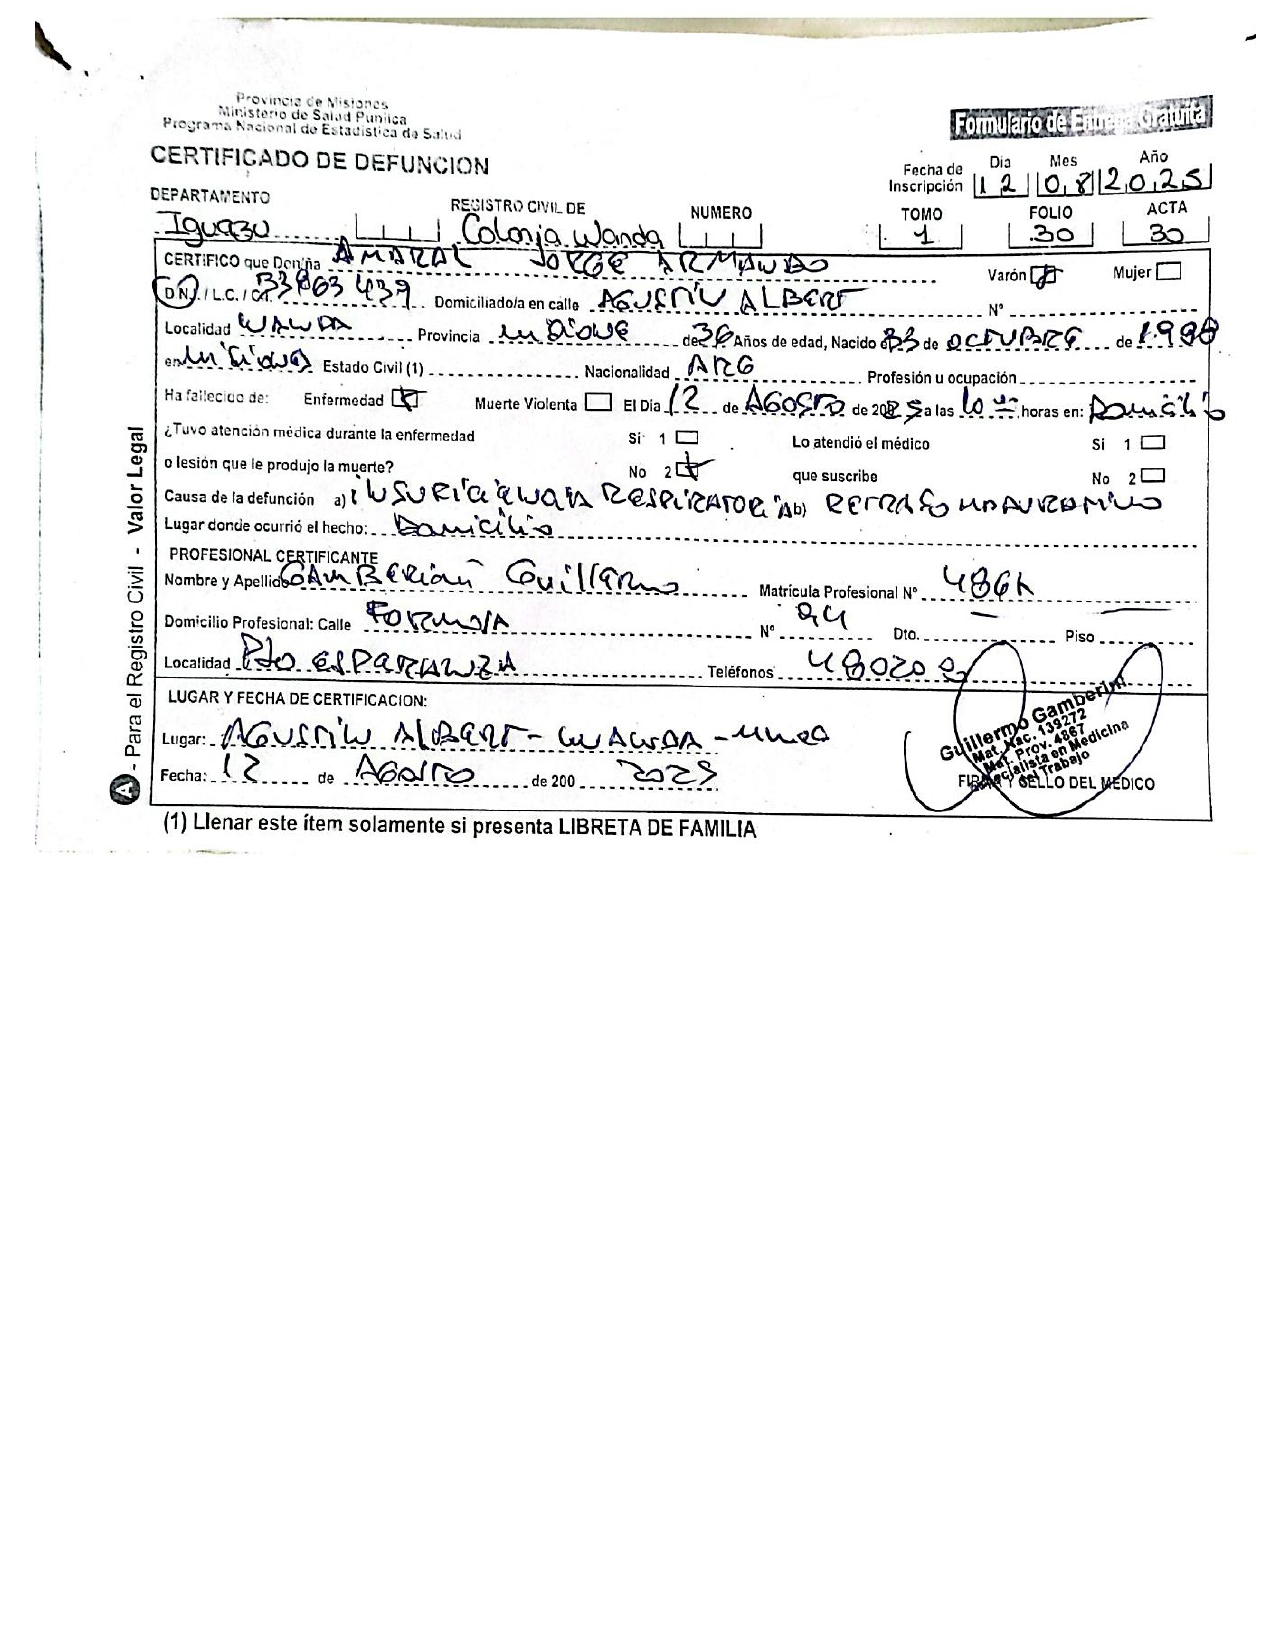 Provincia de Misiones
Ministerio de Salud Publica
Programa Nacional de Estadistica de Salud
Formulario de Entrega Gratuita
CERTIFICADO DE DEFUNCION
Fecha de Inscripción Dia Mes Año 12 08 2025
DEPARTAMENTO REGISTRO CIVIL DE NUMERO TOMO FOLIO ACTA
Iguazu Colonia Wanda 1 30 30
CERTIFICO que Don/ña AMARAL JORGE ARMANDO Varón Mujer
D.N.I. / L.C. / C.I. Domiciliado/a en calle AGUSTIN ALBERT N°
Localidad WANDA Provincia de Años de edad, Nacido el de OCTUBRE de
en Misiones Estado Civil (1) Nacionalidad ARG Profesión u ocupación
Ha fallecido de: Enfermedad Muerte Violenta El Dia 12 de AGOSTO de 2025 a las 10 horas en: Domicilio
¿Tuvo atención médica durante la enfermedad Si 1 Lo atendió el médico Si 1
o lesión que le produjo la muerte? No 2 que suscribe No 2
Causa de la defunción a) RESPIRATORIA b) RETRASO MADURATIVO
Lugar donde ocurrió el hecho: Domicilio
PROFESIONAL CERTIFICANTE
Nombre y Apellido Guillermo Matrícula Profesional N°
Domicilio Profesional: Calle FORMOSA N° 94 Dto. Piso
Localidad Pto ESPERANZA Teléfonos
LUGAR Y FECHA DE CERTIFICACION:
Lugar: AGUSTIN ALBERT - WANDA -
Fecha: 12 de AGOSTO de 200 2025
Guillermo Gamberini
Mat. Nac. 139272
Mat. Prov. 4867
Especialista en Medicina
del Trabajo
FIRMA Y SELLO DEL MEDICO
A - Para el Registro Civil - Valor Legal
(1) Llenar este ítem solamente si presenta LIBRETA DE FAMILIA